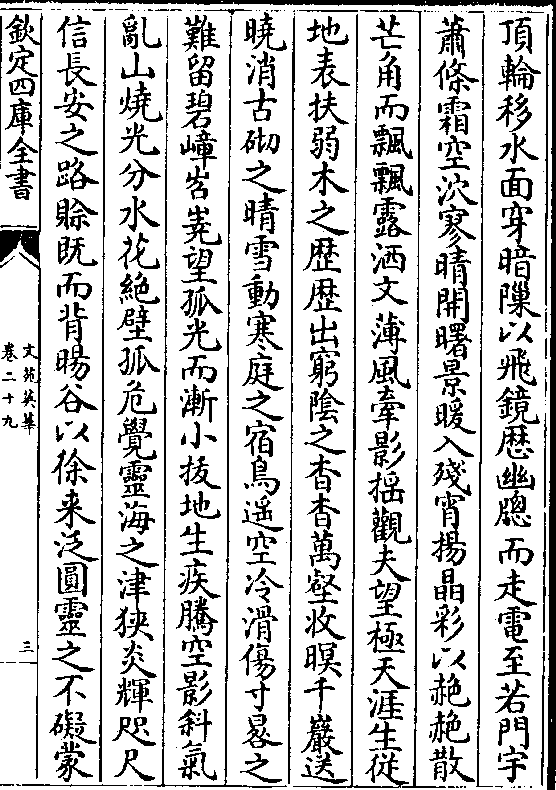 頂輪移水面穿暗隟以飛鏡歴幽牎而走電至若門宇
蕭條霜空泬寥晴開曙景暖入殘宵揚晶彩以赩赩散
芒角而飄飄露洒文薄風牽影揺觀夫望極天涯生從
地表扶弱木之歴歴出窮陰之杳杳萬壑收暝千巖送
曉消古砌之晴雪動寒庭之宿鳥遥空冷滑傷寸晷之
難留碧嶂岧嶤望孤光而漸小拔地生疾騰空影斜氣
亂山燒光分水花絶壁孤危覺靈海之津狹炎輝咫尺
信長安之路賒既而背暘谷以徐来泛圓靈之不礙蒙
欽定四庫全書
文苑英華
卷二十九
三